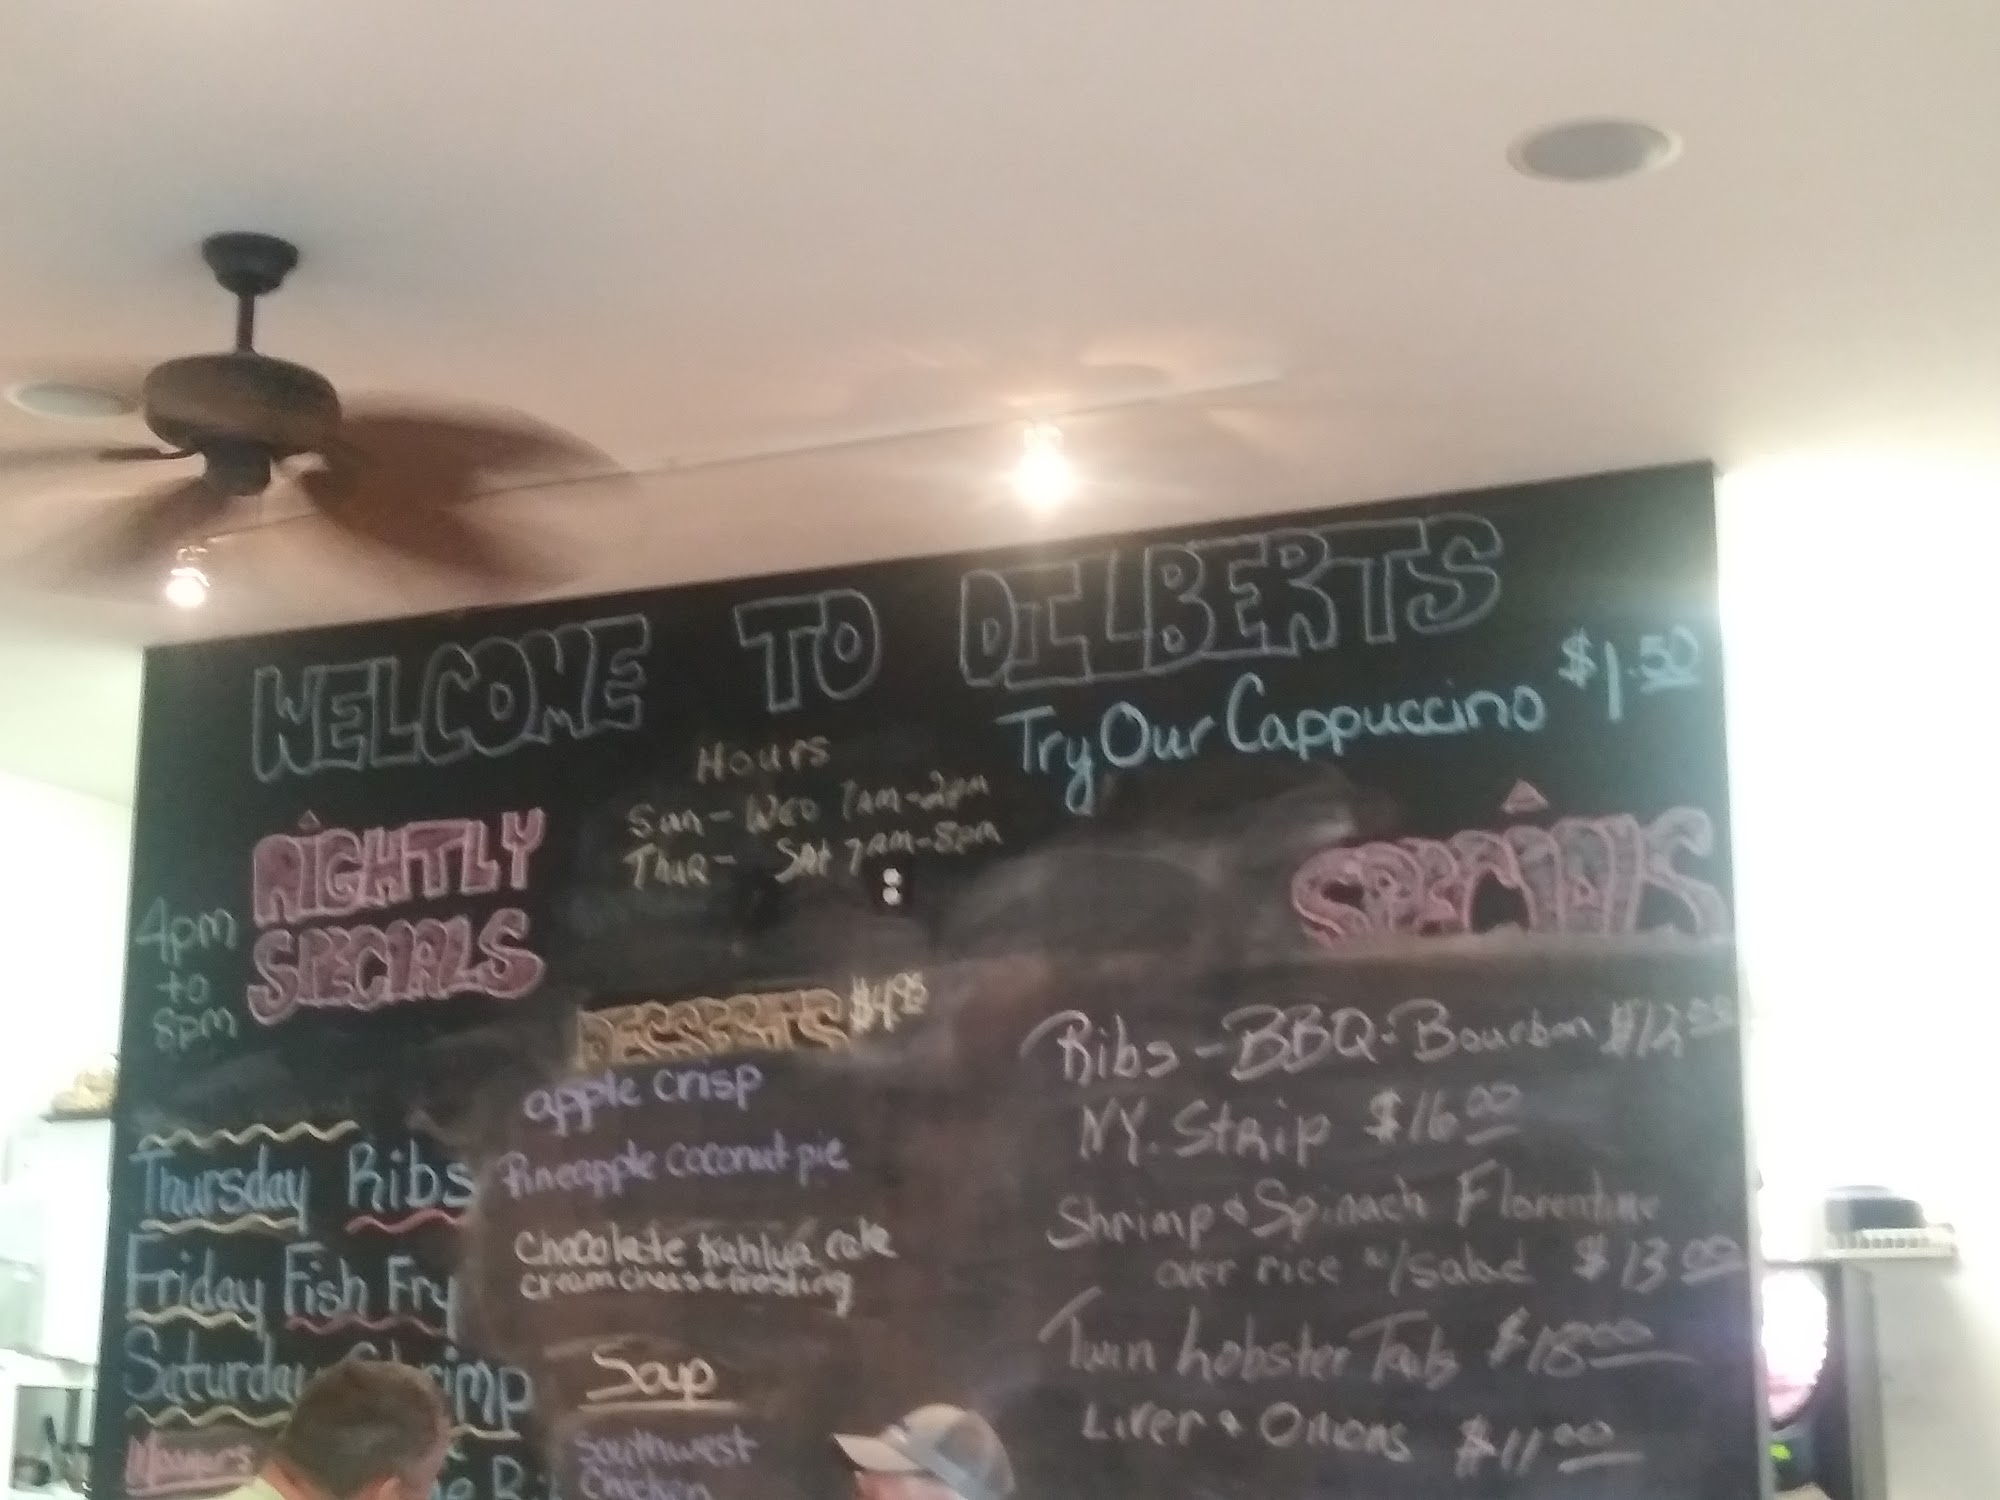 WELCOME TO DILBERTS
Try Our Cappuccino $1.50
Hours
Sun - Wed 7am-2pm
Thur - Sat 7am-8pm
NIGHTLY
SPECIALS
4pm
to
8pm
Thursday Ribs
Friday Fish Fry
Saturday Shrimp
DESSERTS $4.95
apple crisp
Pineapple coconut pie
Chocolate Kahlua cake
cream cheese frosting
Soup
Southwest
Chicken
SPECIALS
Ribs - BBQ - Bourbon
NY. Strip $16.00
Shrimp & Spinach Florentine
over rice w/salad $13.00
Twin Lobster Tails $18.00
Liver & Onions $11.00